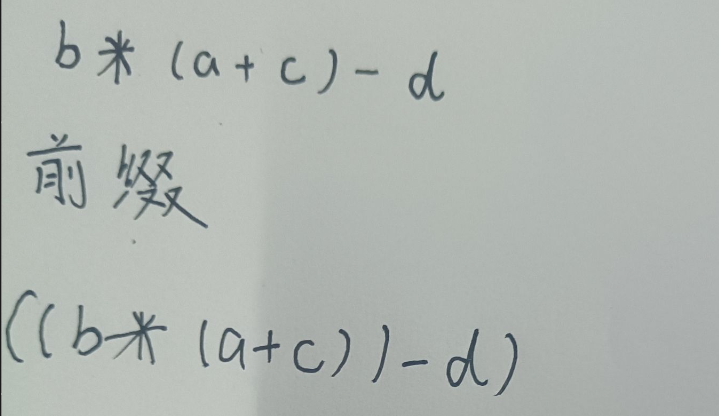 b * (a + c) - d
前缀
((b * (a + c)) - d)